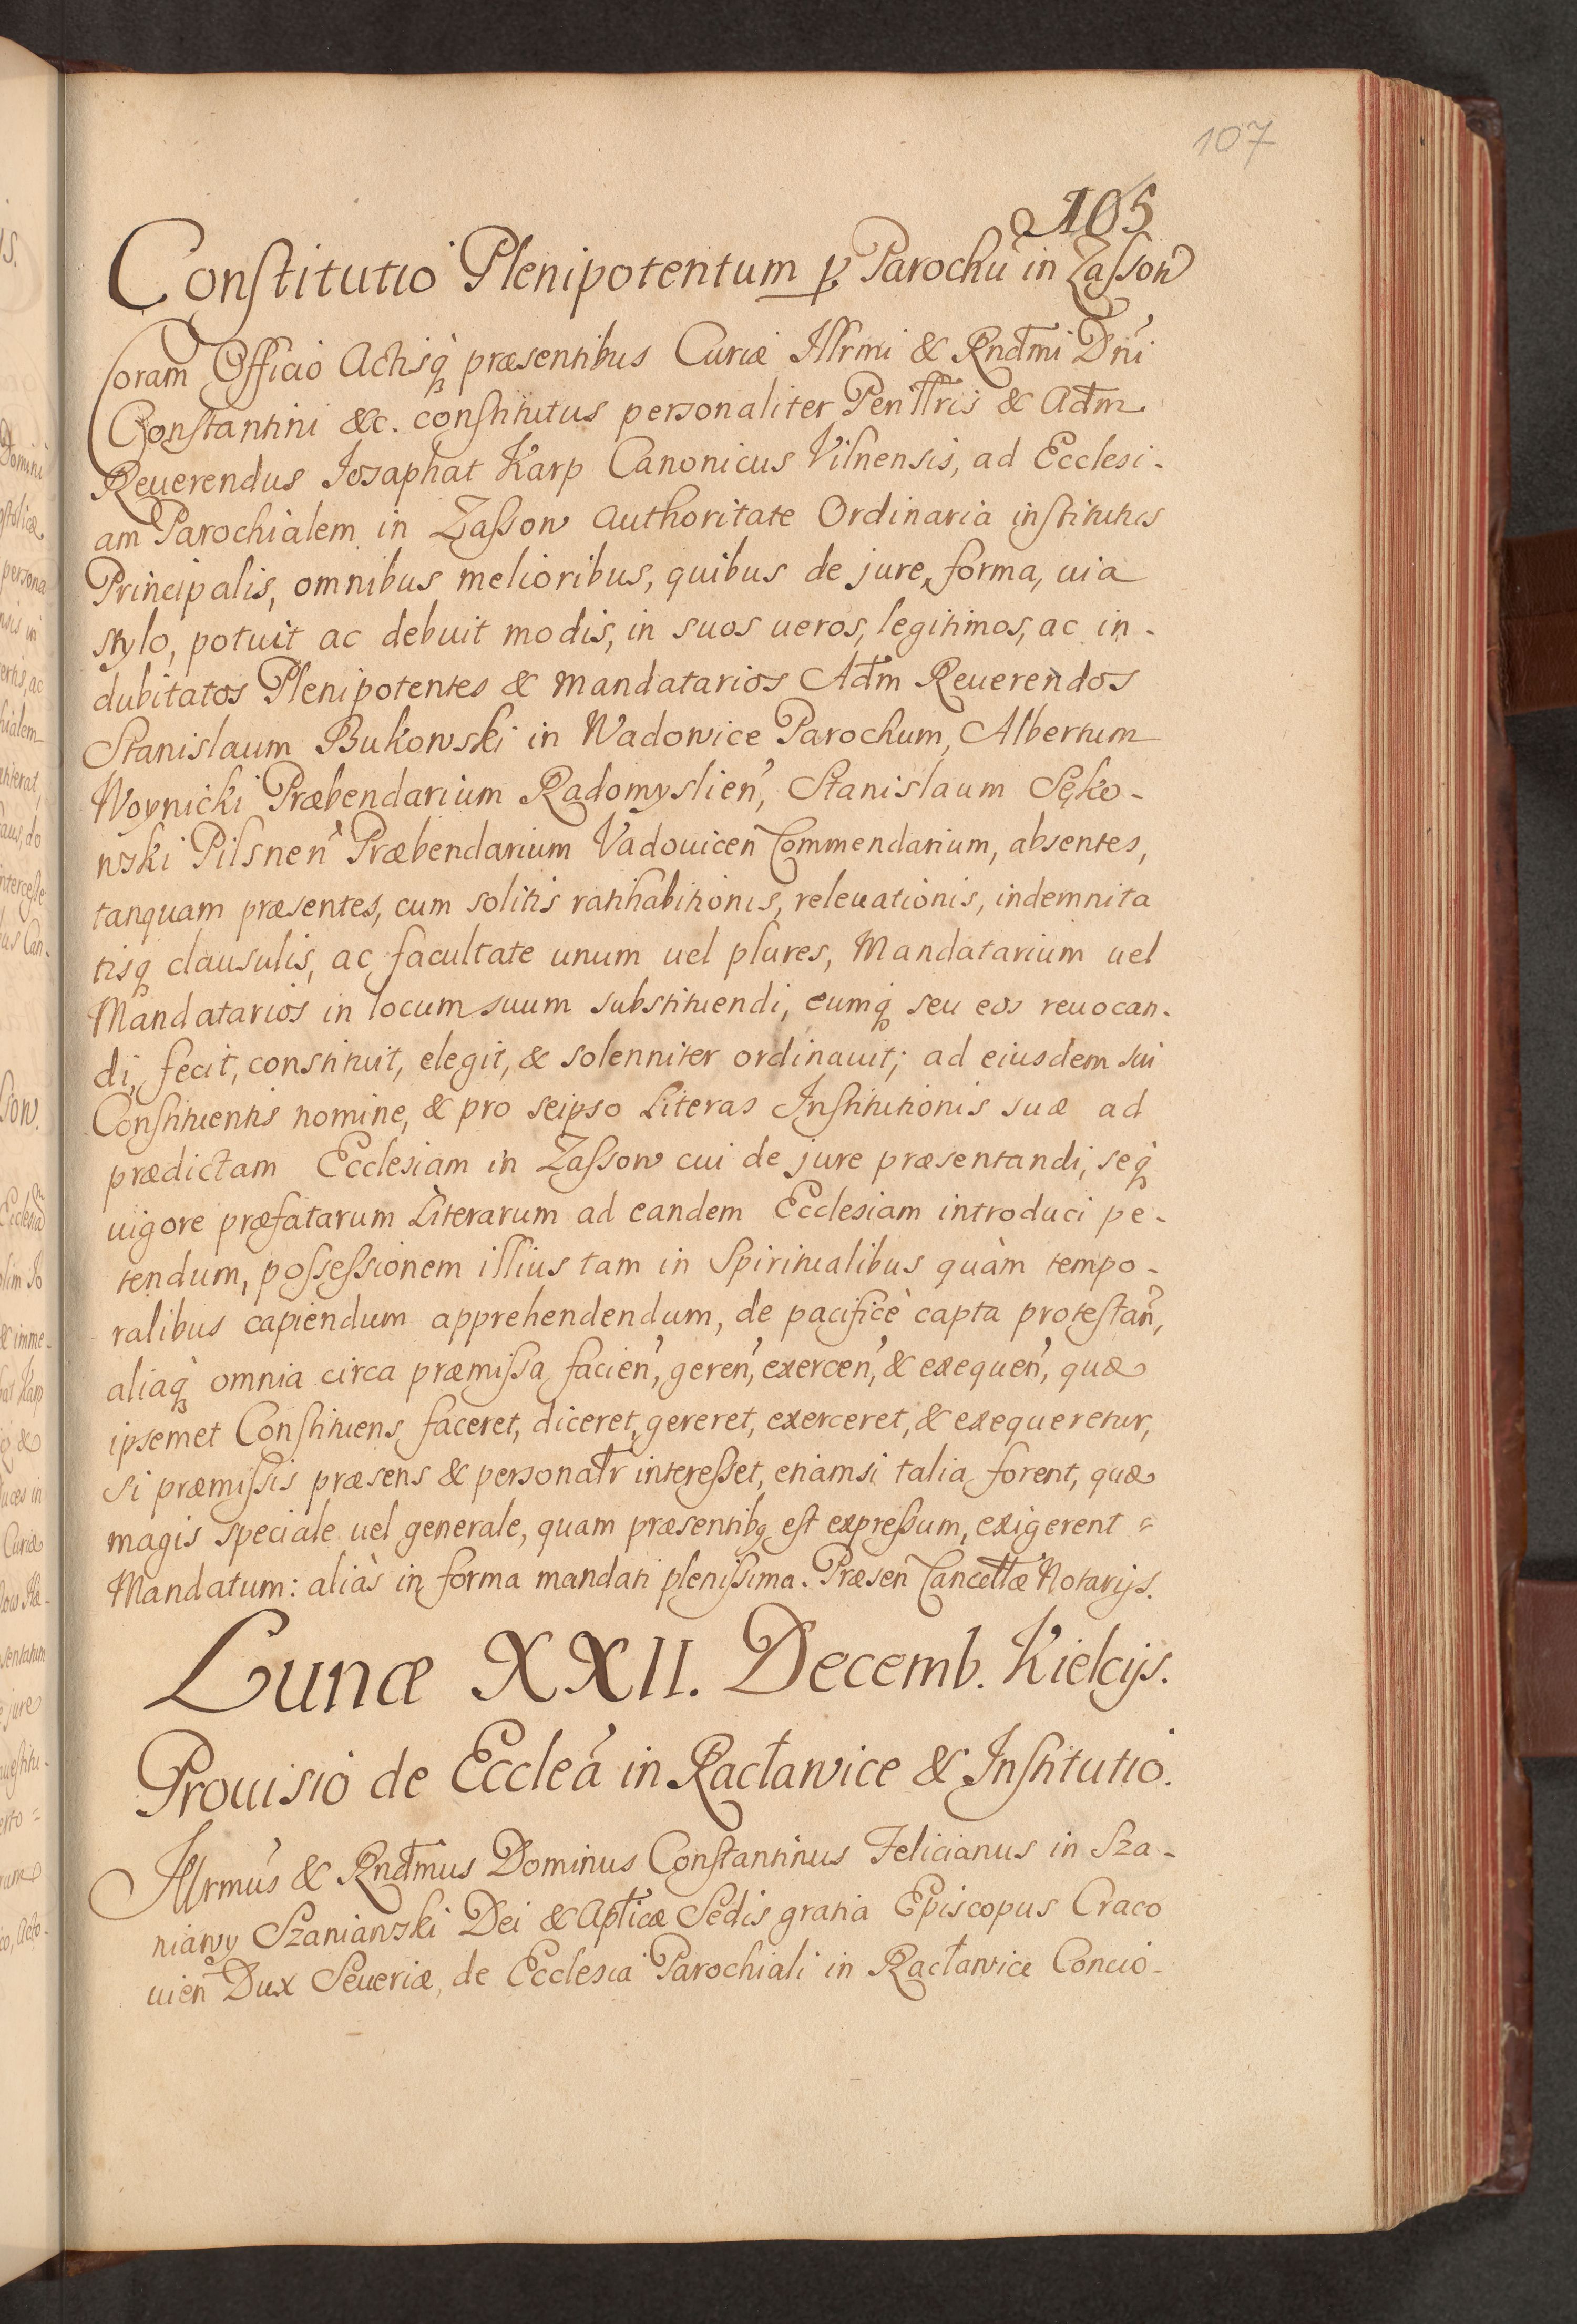 107
105
Constitutio Plenipotentum p. Parochũ in Zasson
Coram Officio Actisq̀ præsentibus Curiæ Illrmi & Rndmi Dñi
Constantini &c. constitutus personaliter Penllris & Adm
Reuerendus Josaphat Karp Canonicus Vilnensis, ad Ecclesi-
am Parochialem in Zasson Authoritate Ordinaria institutus
Principalis, omnibus melioribus, quibus de jure, forma, uia
stylo, potuit ac debuit modis, in suos ueros, legitimos, ac in-
dubitatos Plenipotentes & Mandatarios Adm Reuerendos
Stanislaum Bukowski in Wadowice Parochum, Albertum
Woynicki Præbendarium Radomyslień, Stanislaum Sęko-
wski Pilsneñ Præbendarium Vadouiceñ Commendarium, absentes,
tanquam præsentes, cum solitis ratihabitionis, releuationis, indemnita
tisq clausulis, ac facultate unum uel plures, Mandatarium uel
Mandatarios in locum suum substituendi, eumq̀ seu eos reuocan-
di, fecit, constituit, elegit, & solenniter ordinauit; ad eiusdem sui
Constituentis nomine, & pro seipso Literas Institutionis suæ ad
prædictam Ecclesiam in Zasson cui de jure præsentandi, seq̀
uigore præfatarum Literarum ad eandem Ecclesiam introduci pe-
tendum, possessionem illius tam in Spiritualibus quàm tempo-
ralibus capiendum apprehendendum, de pacificè capta protestañ,
aliaq̀ omnia circa præmissa facień, gereń, exerceń, & exequeń, quæ
ipsemet Constituens faceret, diceret, gereret, exerceret, & exequeretur,
si præmissis præsens & personalr interesset, etiamsi talia forent, quæ
magis speciale uel generale, quam præsentibq est expressum, exigerent =
Mandatum: aliàs in forma mandati plenissima. Præseñ Cancellæ Notarijs.
Lunæ XXII. Decemb. Kielcijs.
Prouisio de Eccleá in Racławice & Institutio.
Illrmús & Rndmus Dominus Constantinus Felicianus in Sza-
niawy Szaniawski Dei & Aplicæ Sedis gratia Episcopus Craco
uień Dux Seueriæ, de Ecclesia Parochiali in Racławice Concio-